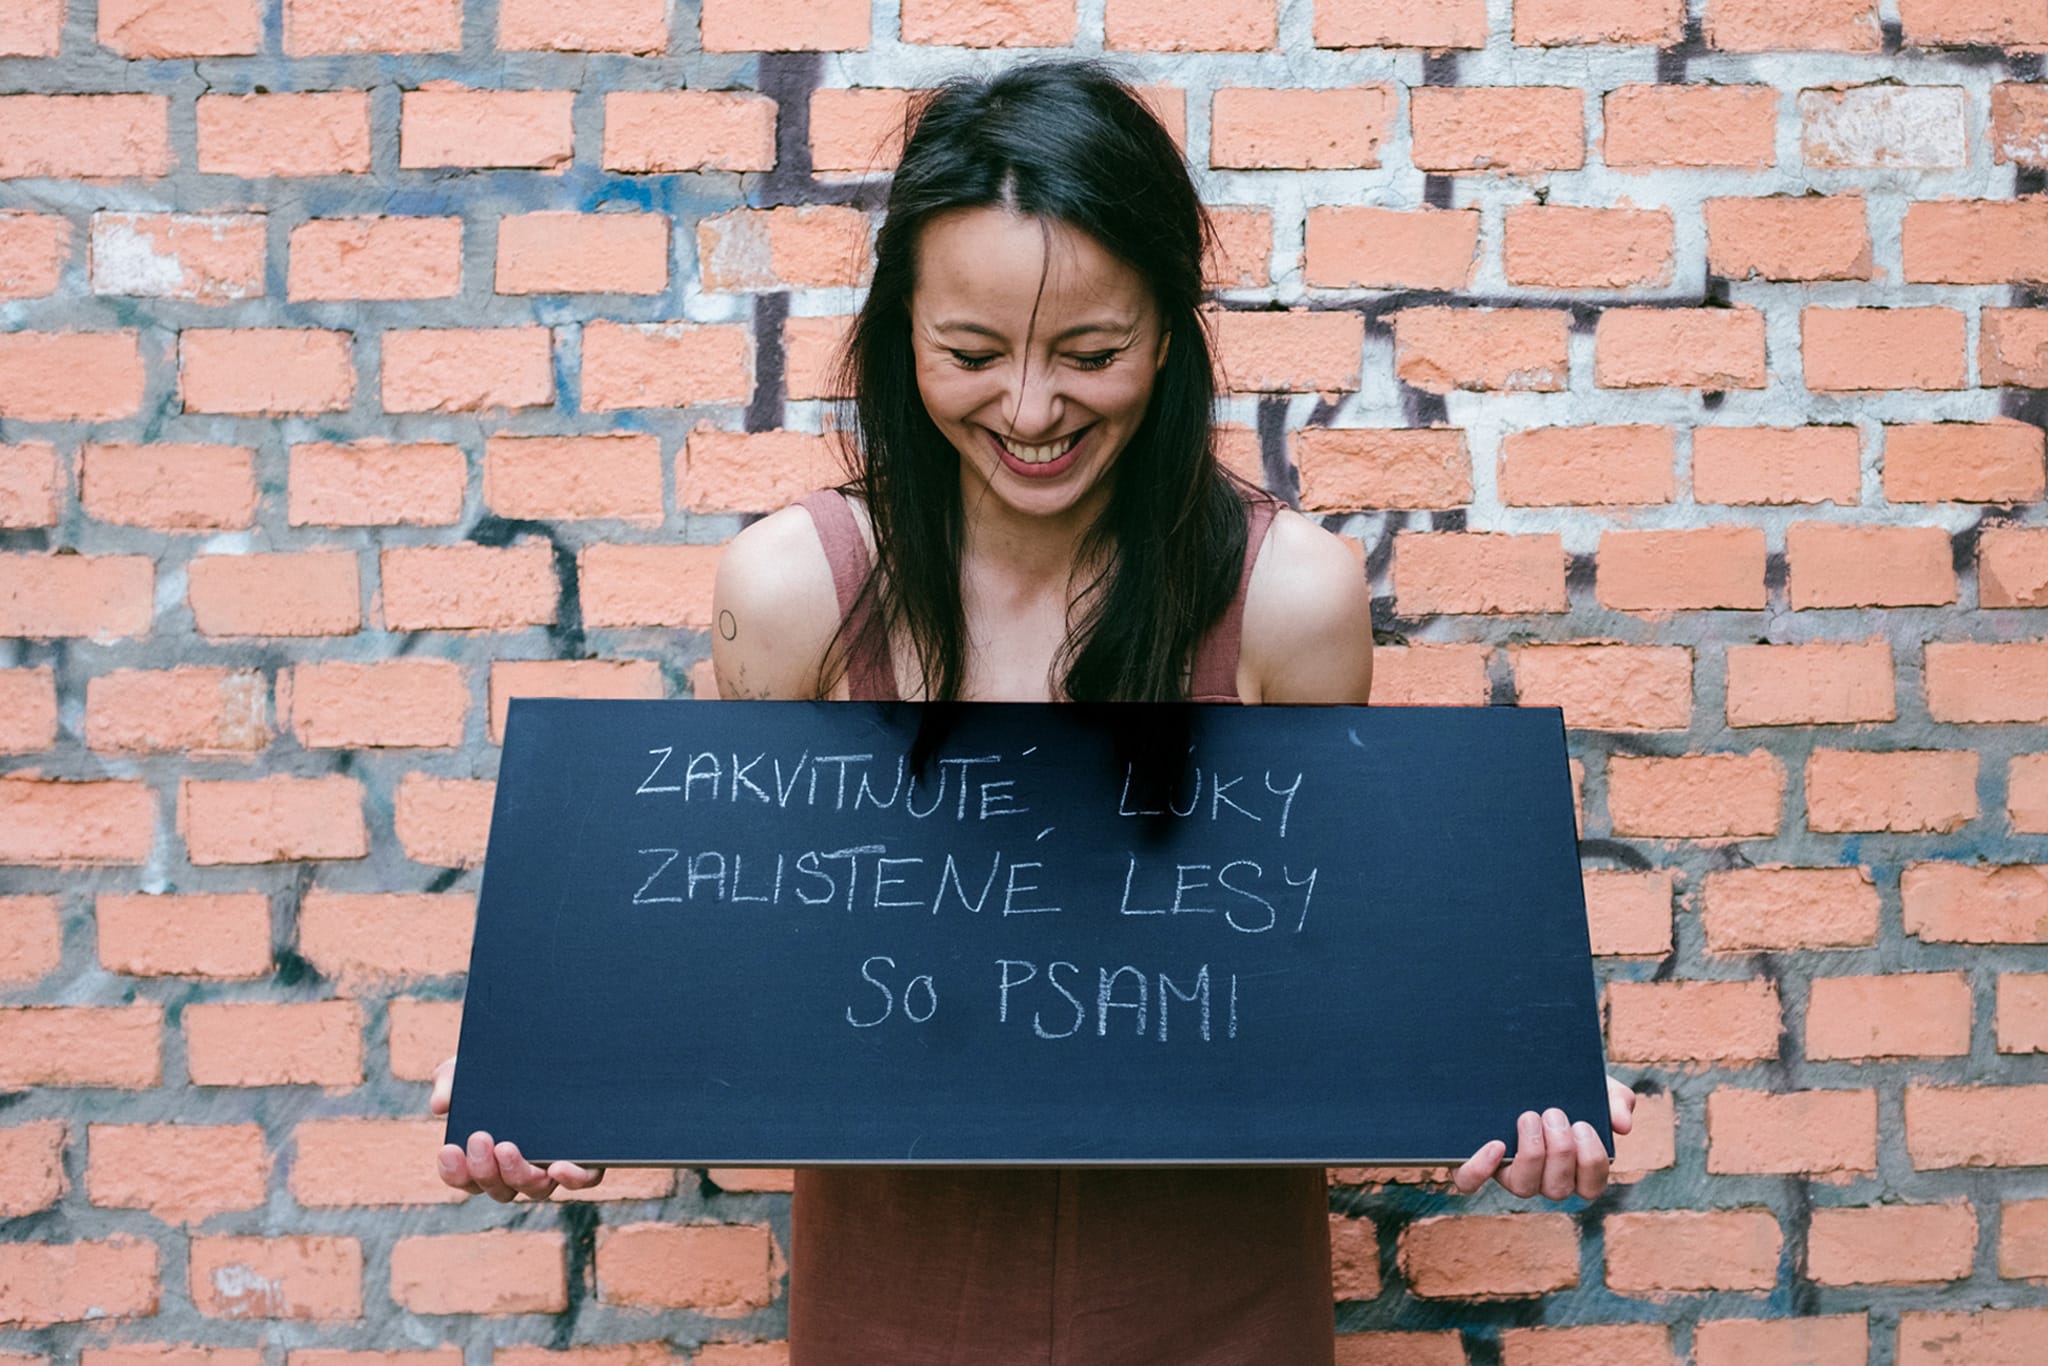 ZAKVITNUTÉ LÚKY
ZALISTENÉ LESY
SO PSAMI